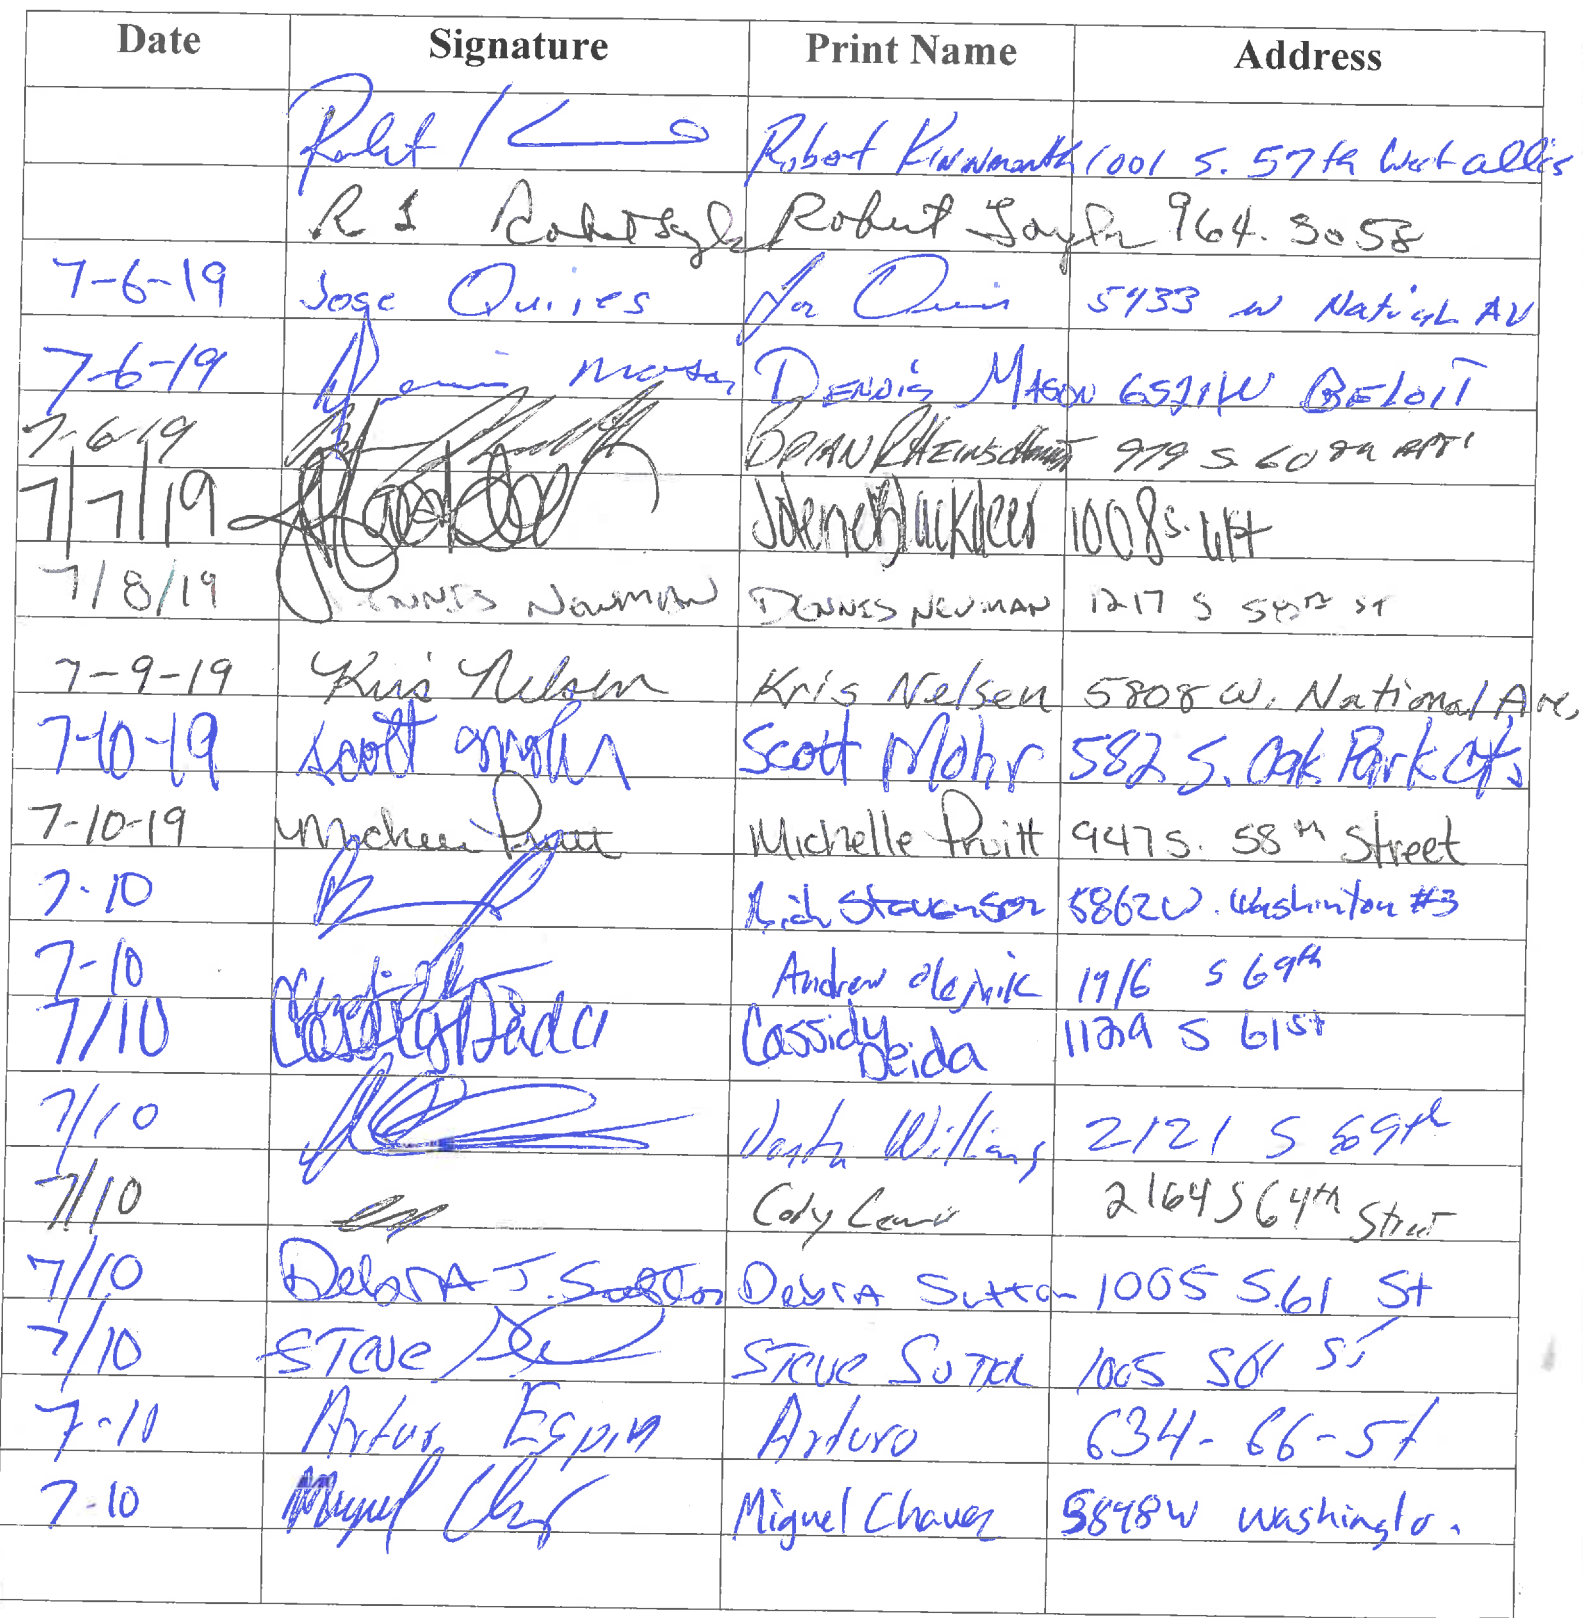 Date Signature Print Name Address
Robert Kinnmonth 1001 S. 57th West allis
R Robert Taylor 964. So 58
7-6-19 Jose Quires 5933 w National AV
7-6-19 Dennis Mason DENNIS MASON 6521 W BELOIT
7-6-19 BRIAN RHEINSCHMIDT 979 S. 60th APT 1
7/7/19 1008 S.
7/8/19 DENNIS NEWMAN DENNIS NEWMAN 1217 S 58TH ST
7-9-19 Kris Nelsen Kris Nelsen 5808 W. National Ave,
7-10-19 Scott Mohr Scott Mohr 582 S. Oak Park Ct,
7-10-19 Michelle Pruitt Michelle Pruitt 947 S. 58th Street
7-10 Rich Stevenson 5862 W. Washinton #3
7-10 Andrew Olejnik 1916 S 69th
7/10 Cassidy Deida Cassidy Deida 1129 S 61st
7/10 Williams 2121 S 69th
7/10 Cody 2164 S 64th Street
7/10 DebrA J. Sutton DebrA Sutton 1005 S.61 St
7/10 STEVE STEVE SUTTON 1005 S 61 ST
7-10 Arturo Espin Arturo 634- 66-St
7-10 Miguel Miguel Chavez 5898 W Washingto.